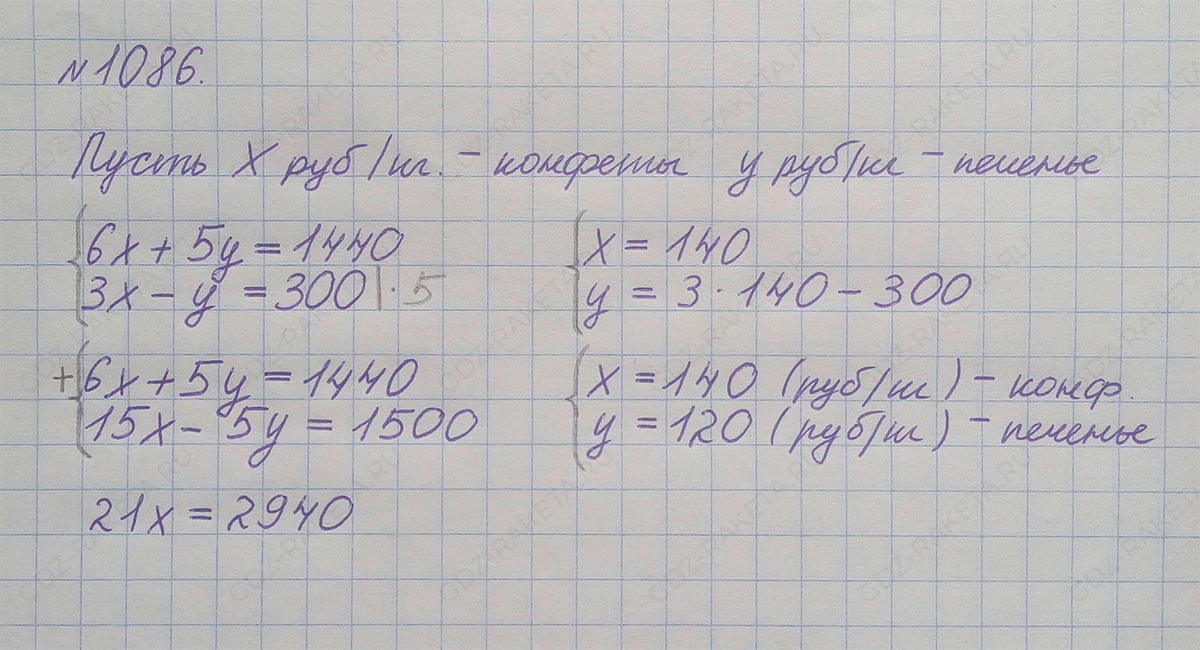 №1086.
Пусть X руб/кг. - конфеты y руб/кг - печенье
6x + 5y = 1440
3x - y = 300 | · 5
+ 6x + 5y = 1440
15x - 5y = 1500
21x = 2940
x = 140
y = 3 · 140 - 300
x = 140 (руб/кг) - конф.
y = 120 (руб/кг) - печенье
GDZ-RAKETA.RU